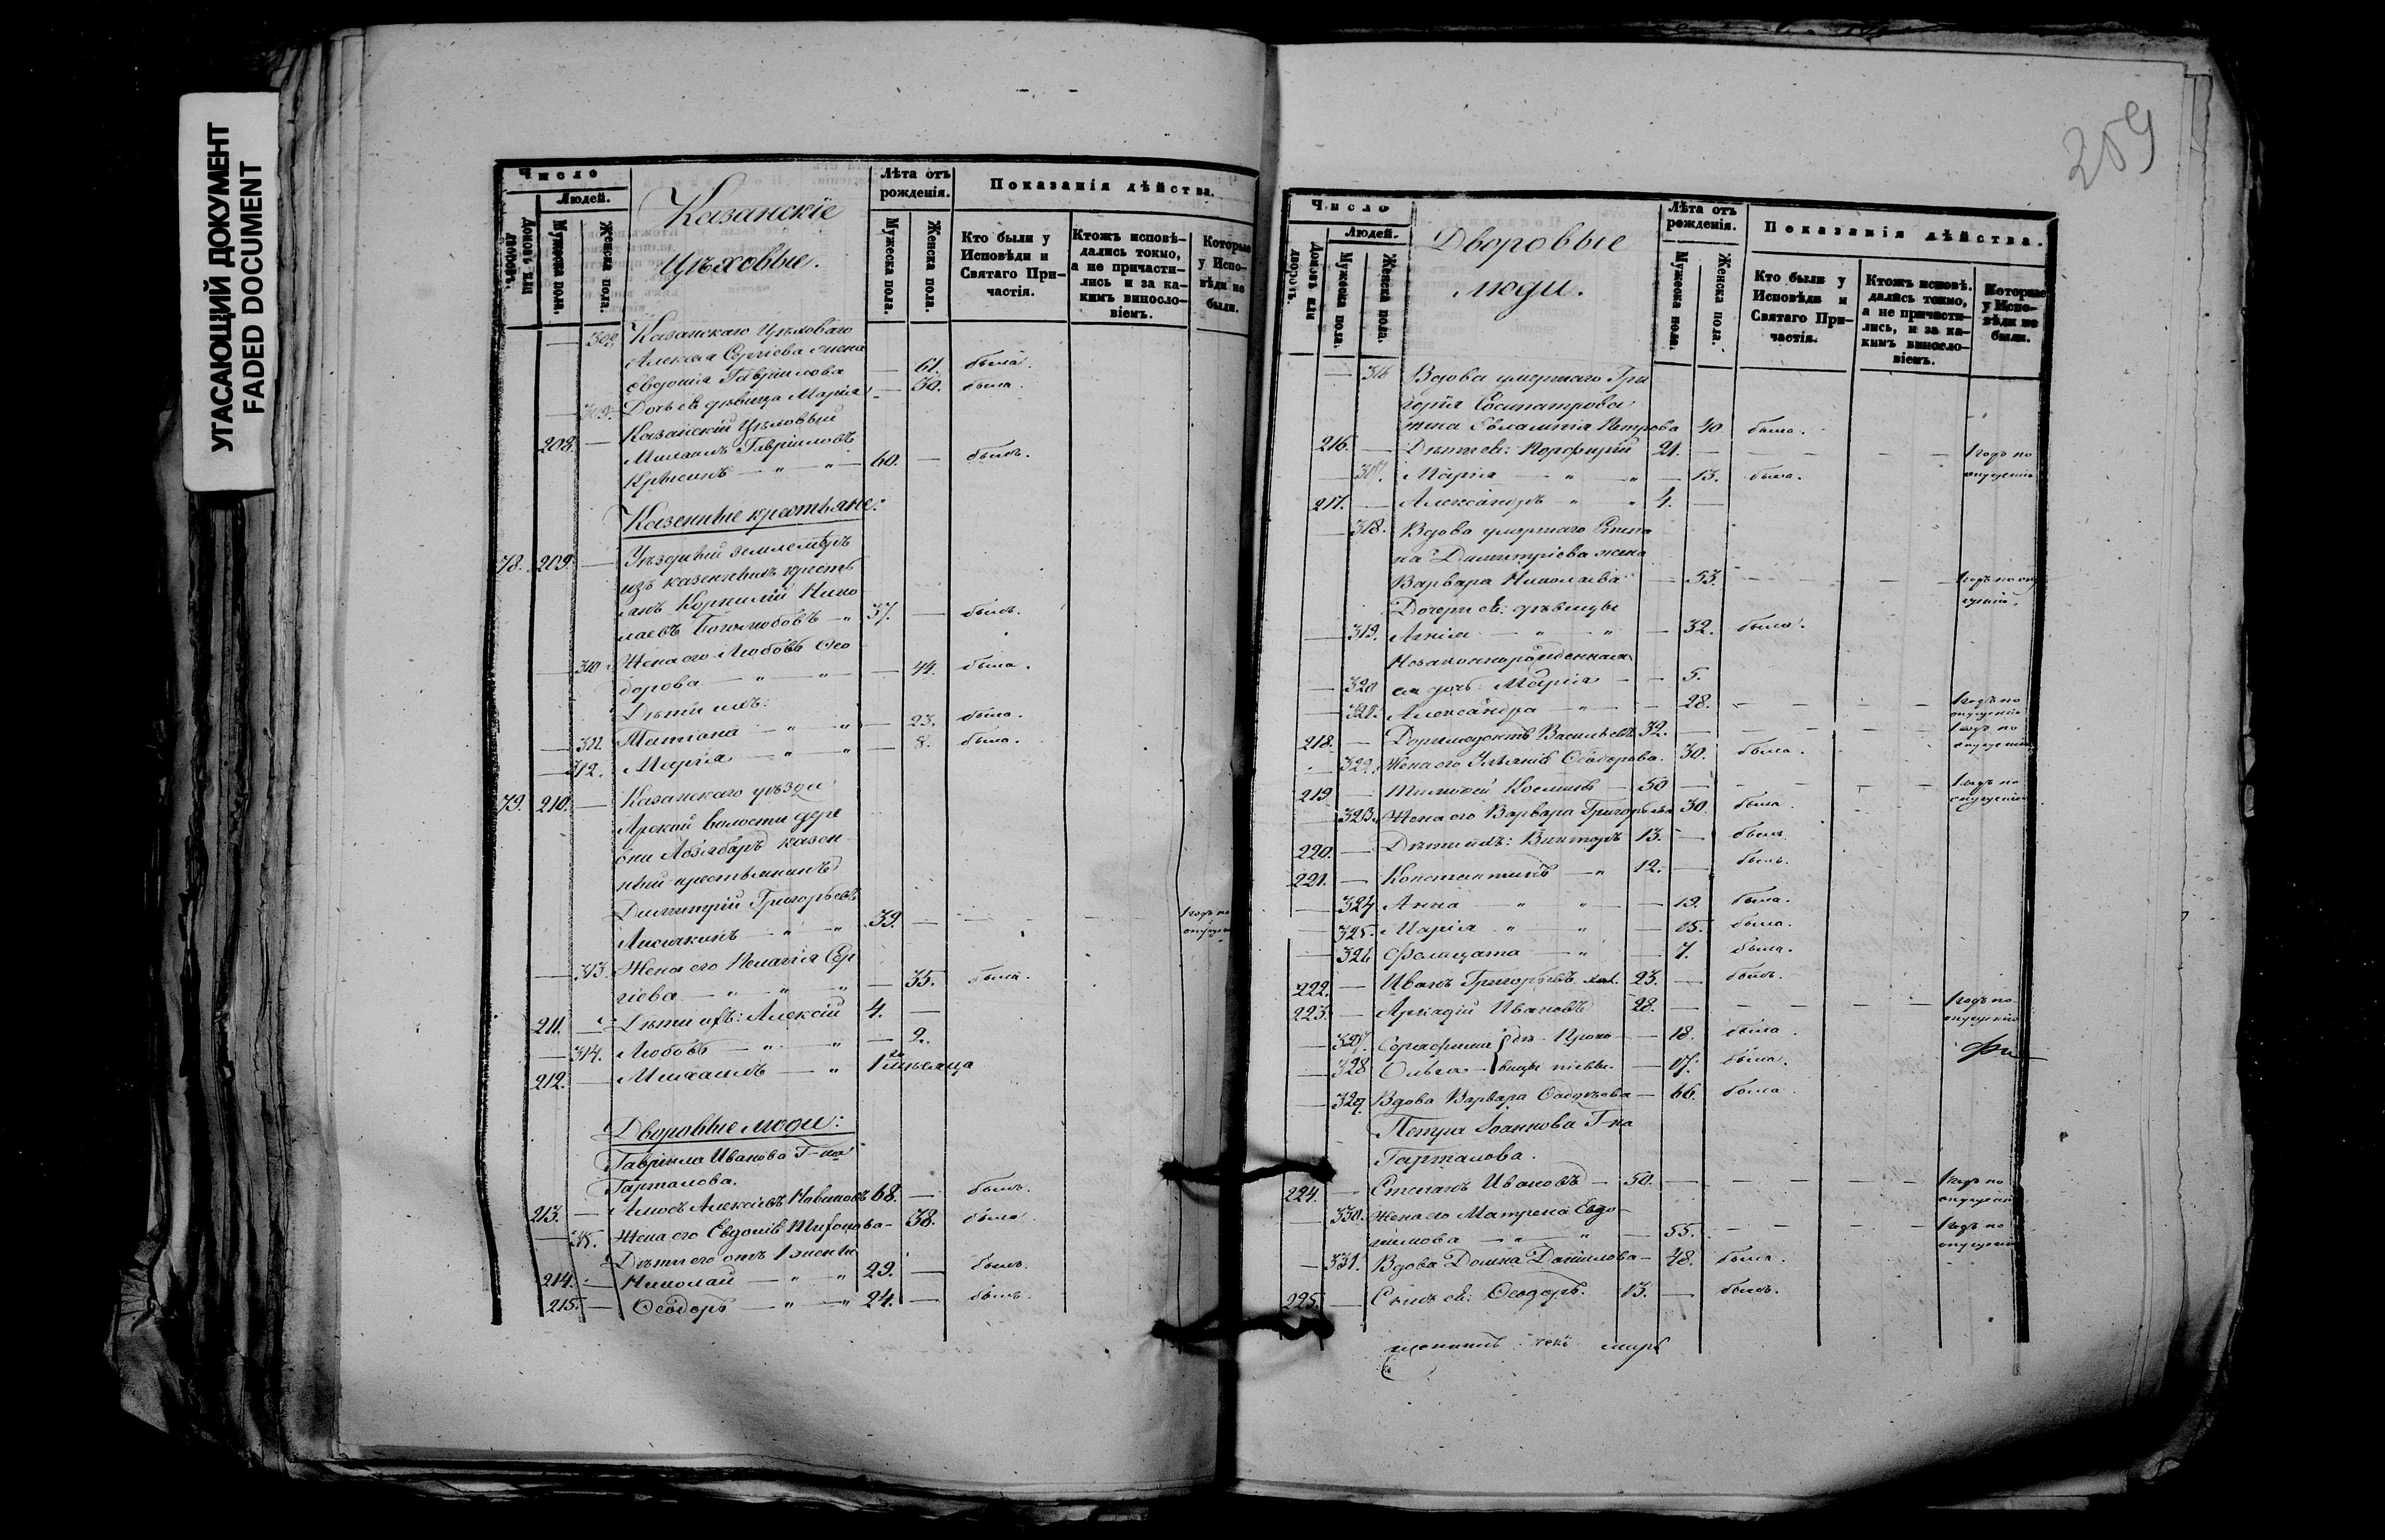 УГАСАЮЩИЙ ДОКУМЕНТ
FADED DOCUMENT
Число
Людей.
Домовъ или дворовъ.
Мужеска пола.
Женска пола.
Казанскіе
Цѣховые.
Лѣта отъ рожденія.
Мужеска пола.
Женска пола.
Показанія дѣйства.
Кто были у Исповѣди и Святаго При-частія.
Ктожъ исповѣ-дались токмо, а не причасти-лись и за ка-кимъ винословіемъ.
Которые у Испо-вѣди не были.
— 309. Казанскаго Цѣховаго
Алексѣя Сергіева жена
Евдокія Гавріилова — 61. была.
— 309. Дочь ея дѣвица Марія — 30. была.
208. — Казанскій Цѣховый
Михаилъ Гавріиловъ
— " — " — 60. — былъ.
Казенные крестьяне:
78. 209. — Уѣздный землемѣръ
изъ казенныхъ кресть
янъ Корнилій Нико
лаевъ Боголюбовъ — " 37. — былъ.
— 310. Жена его Любовь Ѳео
дорова — " — " — — 44. была.
Дѣти ихъ:
— 311. Татіана — " — " — 23. была.
— 312. Марія — " — " — 8. была.
79. 210. — Казанскаго уѣзда
Арской волости дере
вни казен
ный крестьянинъ
Димитрій Григорьевъ
Лисичкинъ — " — " 39. — — — — 1 годъ по опущен
— 313. Жена его Пелагія Сер
гіева — " — " — " — 35. была.
211. — Дѣти ихъ: Алексій 4. —
— 314. Любовь — " — " — 2.
212. — Михаилъ — " 1 мѣсяца
Дворовые люди:
Гавріила Иванова Г-на
Гарталова.
213. — Амосъ Алексѣевъ Новиковъ 68. — былъ.
— 315. Жена его Евдокія Тихонова — 38. была.
Дѣти его отъ 1 жены
214. — Николай — " — " 29. — былъ.
215. — Ѳеодоръ — " — " 24. — былъ.
209
Число
Людей.
Домовъ или дворовъ.
Мужеска пола.
Женска пола.
Дворовые
люди.
Лѣта отъ рожденія.
Мужеска пола.
Женска пола.
Показанія дѣйства.
Кто были у Исповѣди и Святаго При-частія.
Ктожъ исповѣ-дались токмо, а не причасти-лись, и за ка-кимъ винословіемъ.
Которые у Испо-вѣди не были.
— 316 Вдова умершаго Гри
горія Сосипатрова
жена Евлампія Петрова 40 была.
216. — Дѣти ея: Порфирій 21. — — — — 1 годъ по опущенію
— 317. Марія — " — " — 13. была.
217. — Александръ — " " 4. —
— 318. Вдова умершаго Степа
на Димитріева жена
Варвара Николаева — 53. — — — 1 годъ по опу
щенію.
Дочери ея: дѣвицы
— 319. Агнія — " — " — 32. была.
Незаконнорожденная
— 320 ея дочь: Марія — — 5.
— 321. Александра — " — — 28. — — — 1 годъ по опущенію
218. — Доримедонтъ Васильевъ 32. — — — — 1 годъ по опущенію
— 322. Жена его Ульянія Ѳеодорова. 30. была.
219 — Тимоѳей Косминъ — 50 — — — — 1 годъ по опущенію
— 323. Жена его Варвара Григорьева 30. была.
220. — Дѣти ихъ: Викторъ 13. — былъ.
221. — Константинъ — " 12. — былъ.
— 324 Анна — " " — — 19. была.
— 325. Марія — " " — 15. была.
— 326 Фелицата — " — 7. была.
222. — Иванъ Григорьевъ хол. 23. — былъ.
223. — Аркадій Ивановъ 28. — — — — 1 годъ по опущенію
— 327. Серафима } дѣ- Проко — 18. была.
— 328 Ольга — } вицы піевы. — 17. была.
— 329. Вдова Варвара — 66. была.
Петра Іоаннова Г-на
Гарталова.
224. — Степанъ Ивановъ — 50. — — — — 1 годъ по опущенію
— 330. Жена его Матрена Евдо-
кимова — " — " — 55. — — — 1 годъ по опущенію
— 331. Вдова Домна Данилова — 48. была.
225. — Сынъ ея: Ѳеодоръ. 13. — былъ.